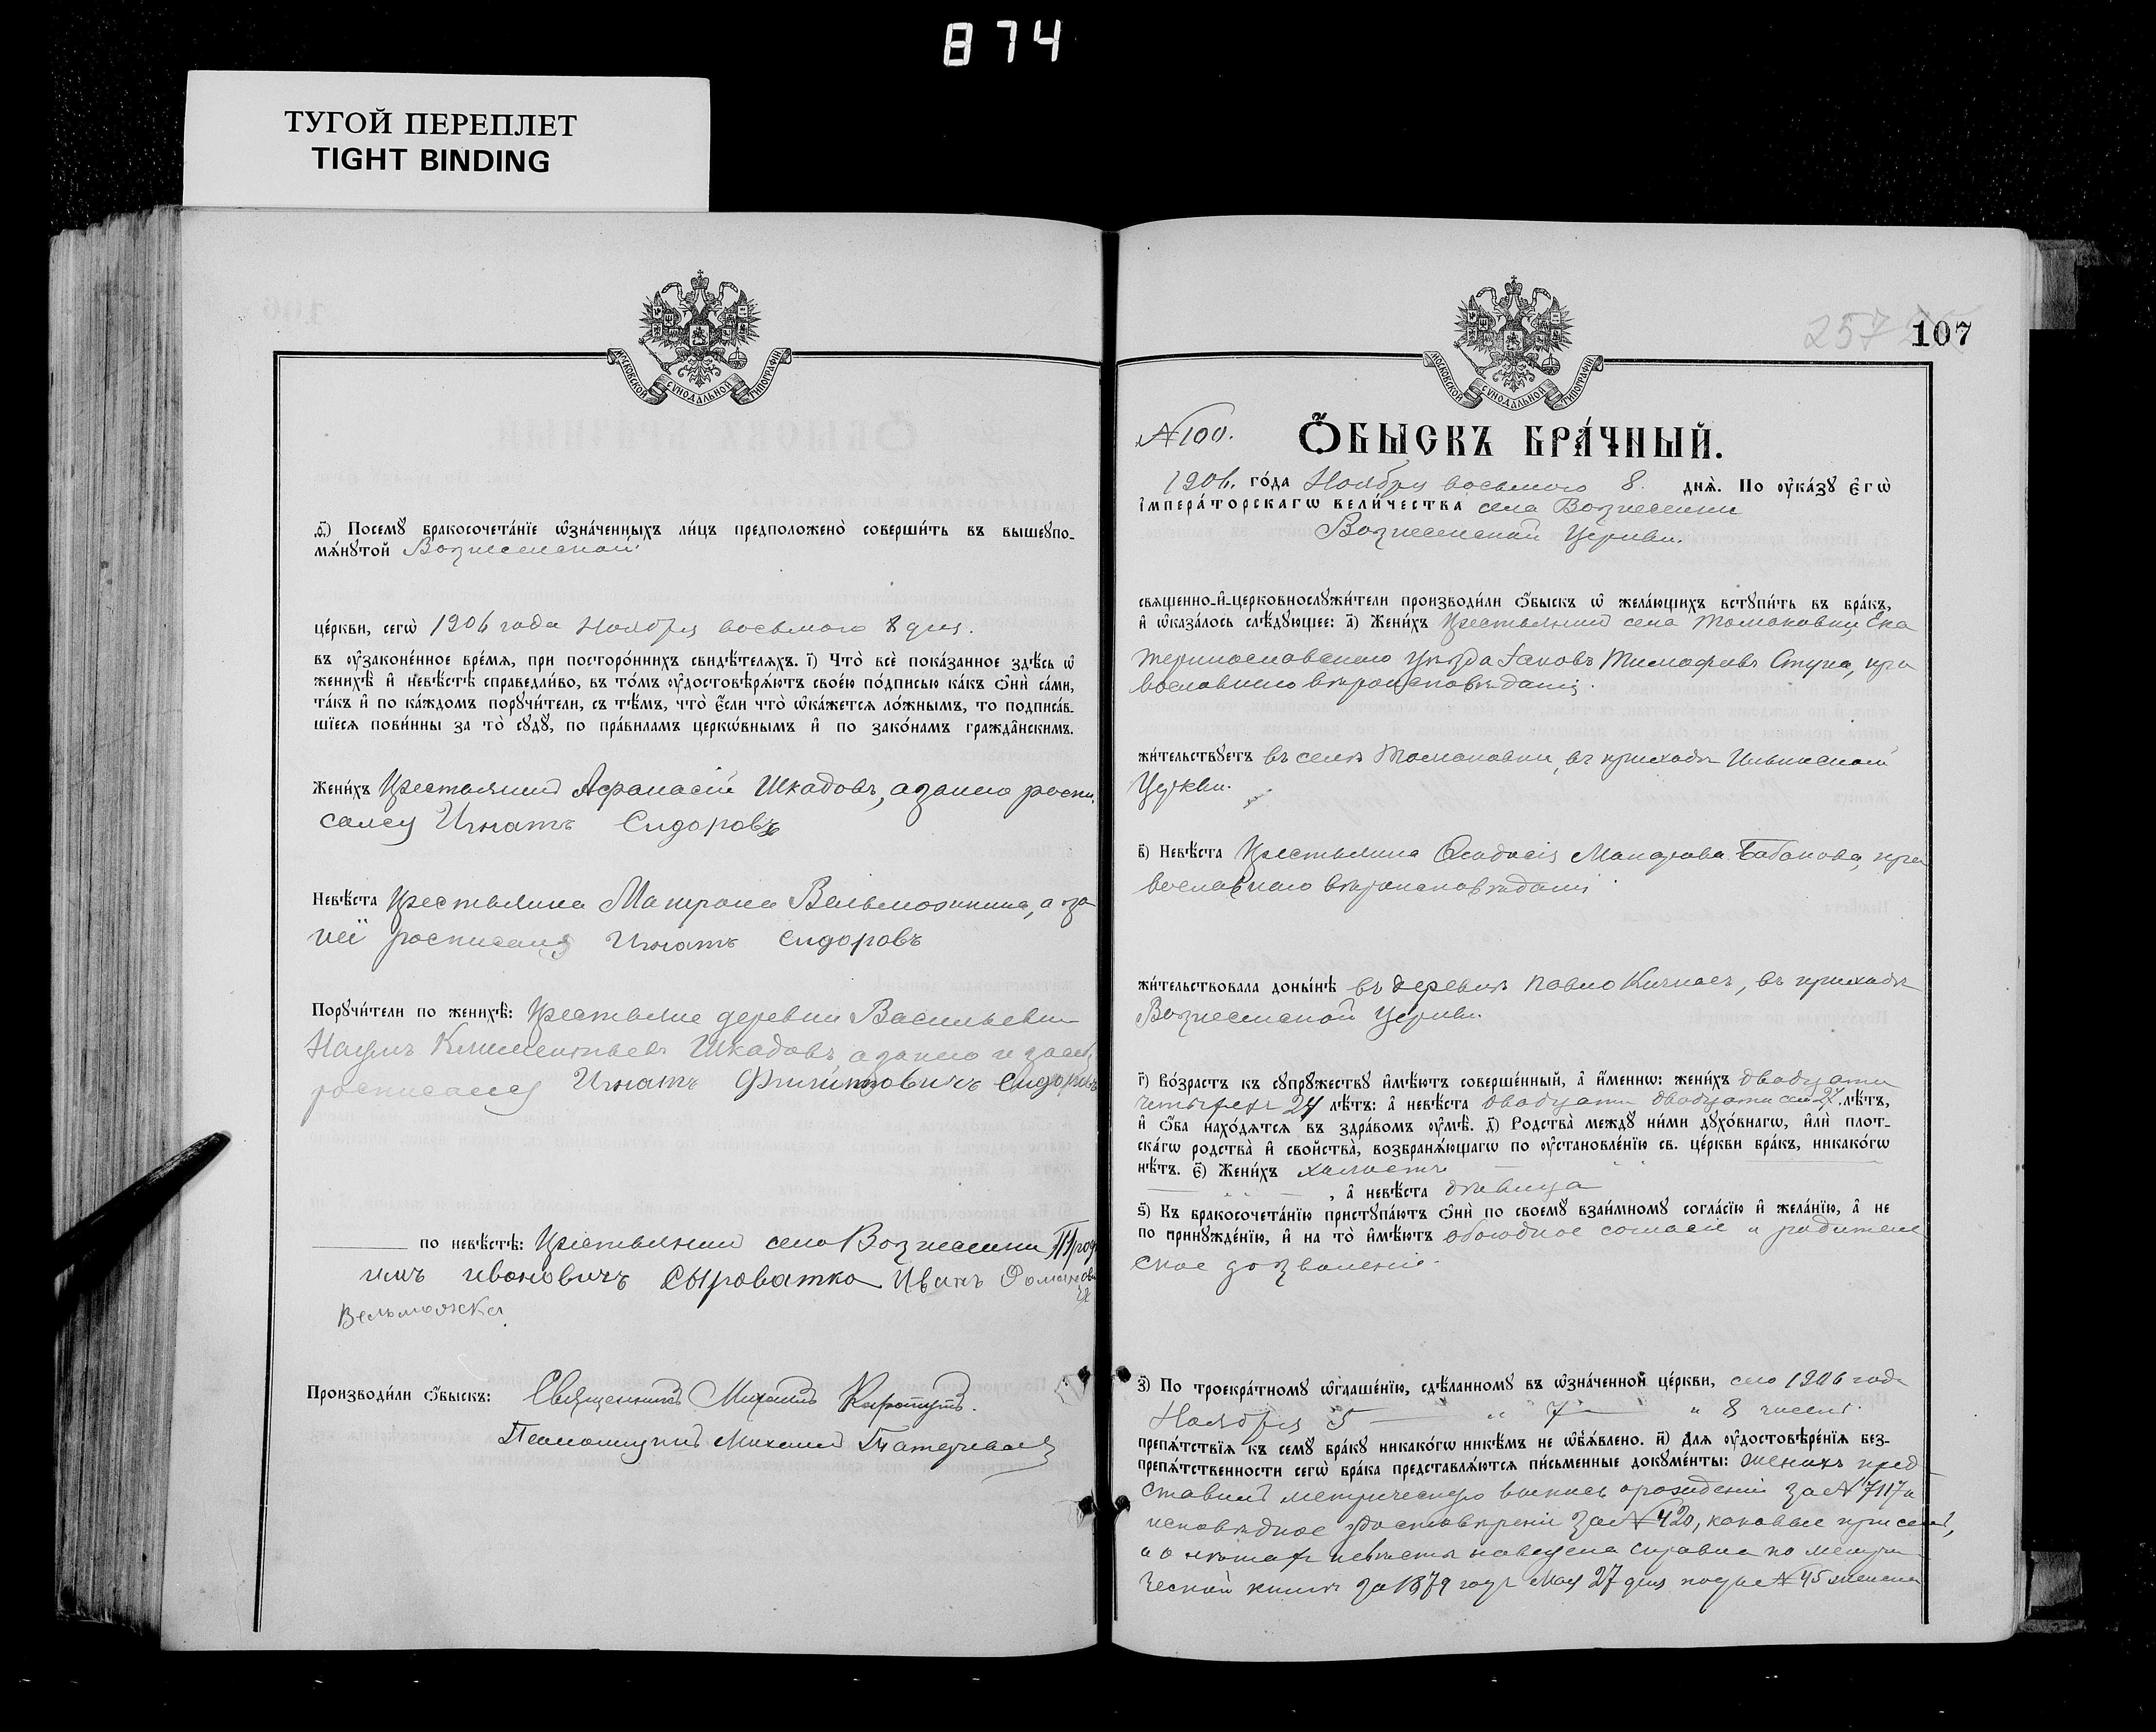 874
ТУГОЙ ПЕРЕПЛЕТ
TIGHT BINDING
МОСКОВСКОЙ СѴНОДАЛЬНОЙ ТИПОГРАФІИ
ѳ҃) Посемꙋ бракосочета́нїе ѡ҆зна́ченныхъ ли́цъ предположено̀ соверши́ть въ вышеꙋпо-
мѧ́нꙋтой Вознесенской
це́ркви, сегѡ̀ 1906 года Ноября восьмого 8 дня.
въ ᲂу҆законе́нное вре́мѧ, при посторо́ннихъ свидѣ́телѧхъ. і҃) Что̀ всѐ пока́занное здѣ́сь ѡ҆
женихѣ̀ и҆ невѣ́стѣ справедли́во, въ то́мъ ᲂу҆достовѣрѧ́ютъ свое́ю по́дписью ка́къ ѻ҆нѝ са́ми,
та́къ и҆ по ка́ждомъ порꙋчи́тели, съ тѣ́мъ, что̀ є҆́сли что̀ ѡ҆ка́жетсѧ ло́жнымъ, то подписа́в-
шїесѧ пови́нны за то̀ сꙋдꙋ̀, по пра́виламъ церкѡ́внымъ и҆ по зако́намъ гражда̑нскимъ.
Жени́хъ Крестьянинъ Афанасій Шкадовъ, а за него роспи
сался Игнатъ Сидоровъ
Невѣ́ста Крестьянка Матрона Вельможкина, а за
неё росписался Игнатъ Сидоровъ
Порꙋчи́тели по женихѣ̀: Крестьяне деревни Васильевки
Наумъ Климентьевъ Шкадовъ а за него и за себя
росписался Игнатъ Филиповичъ Сидоровъ
по невѣ́стѣ: Крестьянинъ села Вознесенки
ивановичъ Сыроватка Иванъ
Вельможка
Производи́ли ѻ҆́быскъ: Священникъ Михаилъ
Псаломщикъ Михаилъ
257 107
МОСКОВСКОЙ СѴНОДАЛЬНОЙ ТИПОГРАФІИ
№ 100. Ѻ҆́БЫСКЪ БРА́ЧНЫЙ.
1906. го́да Ноября восьмого 8. днѧ̀. По ᲂу҆ка́зꙋ є҆гѡ̀
і҆мпера́торскагѡ вели́чества села Вознесенки
Вознесенской Церкви.
свѧщенно-и҆-церковнослꙋжи́тели производи́ли ѻ҆́быскъ ѡ҆ жела́ющихъ встꙋпи́ть въ бра́къ,
и҆ ѡ҆каза́лось слѣ́дꙋющее: а҃) Жени́хъ Крестьянинъ села Томаковки, Ека
теринославскаго Уѣзда Іаковъ Тимофеевъ Ступа, пра
вославнаго вѣроисповѣданія.
жи́тельствꙋетъ въ селѣ Томаковки, въ приходѣ Ильинской
Церкви.
в҃) Невѣ́ста Крестьянка Ѳеодосія Макарова Бабакова, пра
вославнаго вѣроисповѣданія
жи́тельствовала доны́нѣ въ деревнѣ Павло Кичкасъ, въ приходѣ
Вознесенской Церкви.
г҃) Во́зрастъ къ сꙋпрꙋ́жествꙋ и҆мѣ́ютъ соверше́нный, а҆ и҆́меннѡ: жени́хъ двадцати
четырехъ 24 лѣ́тъ: а҆ невѣ́ста двадцати двадцати сем 27. лѣ́тъ,
и҆ ѻ҆́ба нахо́дѧтсѧ въ здра́вомъ ᲂу҆мѣ̀. д҃) Родства̀ междꙋ ни́ми дꙋхо́внагѡ, и҆лѝ плот-
ска́гѡ родства̀ и҆ сво́йства̀, возбранѧ́ющагѡ по ᲂу҆становле́нїю св. це́ркви бра́къ, никако́гѡ
нѣ́тъ. є҃) Жени́хъ холостъ
, а҆ невѣ́ста дѣвица
ѕ҃) Къ бракосочета́нїю пристꙋпа́ютъ ѻ҆нѝ по своемꙋ̀ взаи́мномꙋ согла́сїю и҆ жела́нїю, а҆ не
по принꙋжде́нїю, и҆ на то̀ и҆мѣ́ютъ обоюдное согласіе и родитель
ское дозволеніе.
з҃) По троекра́тномꙋ ѡ҆глаше́нїю, сдѣ́ланномꙋ въ ѡ҆зна́ченной це́ркви, сего 1906 года
Ноября 5 — „ 7 — „ 8 чиселъ.
препѧ́тствїѧ къ семꙋ̀ бра́кꙋ никако́гѡ никѣ́мъ не ѡ҆б̾ѧ́влено. и҃) Длѧ ᲂу҆достовѣре́нїѧ без-
препѧ́тственности сегѡ̀ бра́ка представлѧ́ютсѧ пи́сьменные докꙋме́нты: женихъ пред-
ставилъ метрическую выпись о рожденіи за № 7117 и
исповѣдное удостовѣреніе за № 420, каковые при семъ,
а о лѣтахъ невѣсты наведена справка по метри
ческой книгѣ за 1879 годъ Мая 27 дня подъ № 45 женска